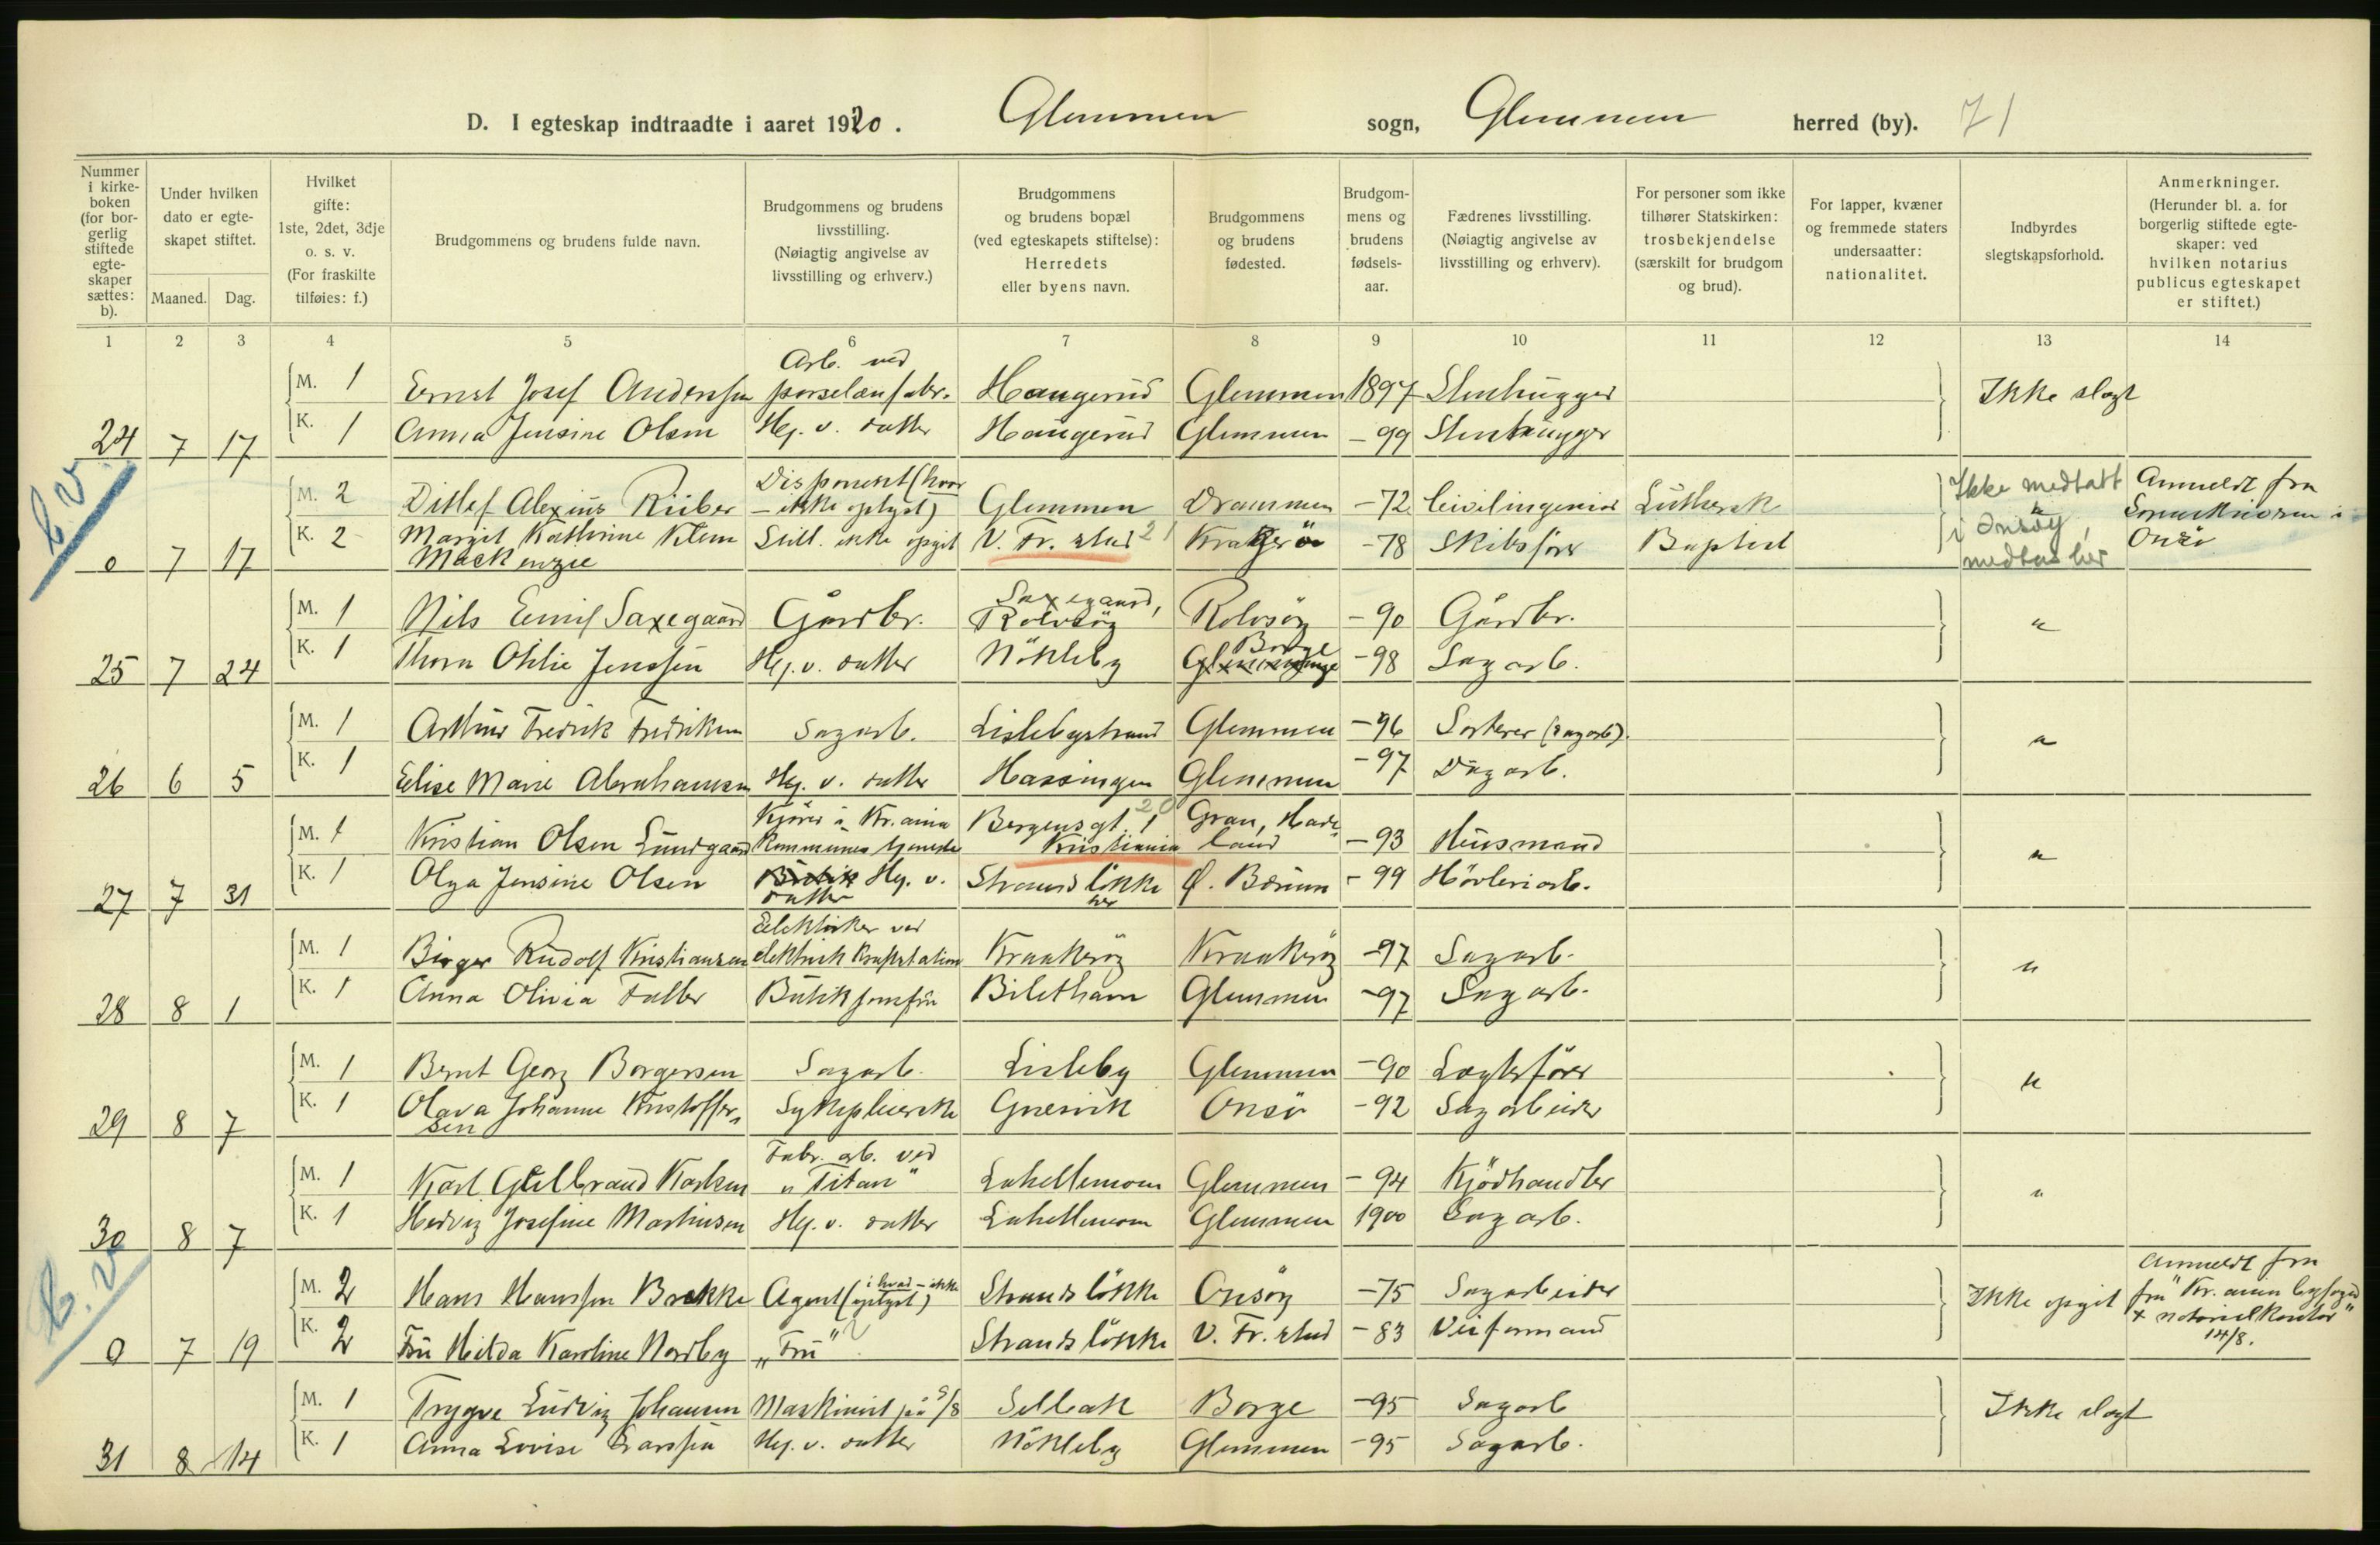 D. I egteskap indtraadte i aaret 1920. Glemmen sogn, Glemmen herred (by). 71
Nummer i kirke-boken (for bor-gerlig stiftede egte-skaper sættes: b).
Under hvilken dato er egte-skapet stiftet.
Maaned. Dag.
Hvilket gifte: 1ste, 2det, 3dje o. s. v. (For fraskilte tilføies: f.)
Brudgommens og brudens fulde navn.
Brudgommens og brudens livsstilling. (Nøiagtig angivelse av livsstilling og erhverv.)
Brudgommens og brudens bopæl (ved egteskapets stiftelse): Herredets eller byens navn.
Brudgommens og brudens fødested.
Brudgom-mens og brudens fødsels-aar.
Fædrenes livsstilling. (Nøiagtig angivelse av livsstilling og erhverv).
For personer som ikke tilhører Statskirken: trosbekjendelse (særskilt for brudgom og brud).
For lapper, kvæner og fremmede staters undersaatter: nationalitet.
Indbyrdes slegtskapsforhold.
Anmerkninger. (Herunder bl. a. for borgerlig stiftede egte-skaper: ved hvilken notarius publicus egteskapet er stiftet.)
1 2 3 4 5 6 7 8 9 10 11 12 13 14
M. 1 Ernst Josef Anderssen Arb. ved porselænfabr. Haugerud Glemmen 1897 Stenhugger Ikke slegt
24 7 17 K. 1 Anna Jensine Olsen Hj. v. datter Haugerud Glemmen -99 Stenhugger
b.v
M. 2 Ditlef Alexius Rüber Disponent (hvor - ikke oplyst) Glemmen Drammen -72 Civilingeniør Luthersk Ikke medtatt i Onsøy, medtas her Anmeldt fra Sorenskriveren i Onsö
0 7 17 K. 2 Margit Kathrine Klem Mackenzie Still. ikke opgit V. Fr.stad 21 Kragerö -78 Skibsfører Baptist
M. 1 Nils Emil Saxegaard Gårdbr. Saxegaard, Rolvsöy Rolvsöy -90 Gårdbr. "
25 7 24 K. 1 Thora Otilie Jenssen Hj. v. datter Nökleby Borge -98 Sagarb.
M. 1 Arthur Fredrik Fredriksen Sagarb. Lislebystrand Glemmen -96 Sorterer (sagarb). "
26 6 5 K. 1 Elise Marie Abrahamsen Hj. v. datter Hassingen Glemmen -97 Dagarb.
M. 1 Kristian Olsen Lundgaard Kjörer i Kr.ania Kommunes tjeneste Bergensgt. 1 20 Kristiania Gran, Hade-land -93 Husmand "
27 7 31 K. 1 Olga Jensine Olsen Butik Hj. v. datter Strandslökke her Ø. Bærum -99 Hövleriarb.
M. 1 Birger Rudolf Kristiansen Elektriker ved elektrisk Kraftstation Kraakeröy Kraakeröy -97 Sagarb. "
28 8 1 K. 1 Anna Olivia Faller Butikjomfru Bilethavn Glemmen -97 Sagarb.
M. 1 Bernt Georg Borgersen Sagarb. Lisleby Glemmen -90 Lægterförer "
29 8 7 K. 1 Olava Johanne Kristoffer-sen Sykepleierske Gresvik Onsö -92 Sagarbeider
M. 1 Karl Gulbrand Karlsen Fabr. arb. ved "Titan" Lahellemoen Glemmen -94 Kjödhandler "
30 8 7 K. 1 Hedvig Josefine Martinsen Hj. v. datter Lahellemoen Glemmen 1900 Sagarb.
b.v
M. 2 Hans Hanssen Brekke Agent (i hvad - ikke oplyst) Strandslökke Onsöy -75 Sagarbeider Ikke opgit Anmeldt fra fra "Kr.ania byfoged + notarielkontor" 14/8.
0 7 19 K. 2 Fru Hilda Karoline Nordby "Fru" Strandslökke V. Fr.stad -83 Veiformand
M. 1 Trygve Ludvig Johansen Maskinist på S/S Selbak Borge -95 Sagarb Ikke slegt
31 8 14 K. 1 Anna Lovise Larssen Hj. v. datter Nökleby Glemmen -95 Sagarb.